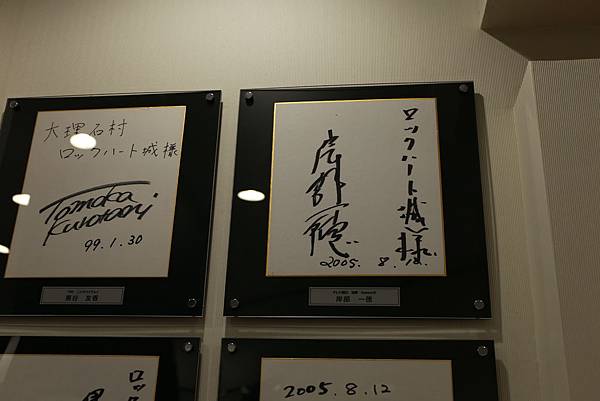 大理石村
ロックハート城様
Tomoka
Kurotani
99.1.30
黒谷 友香
ロックハート城様
岸部一徳
2005. 8.
岸部 一徳
ロック
2005.8.12